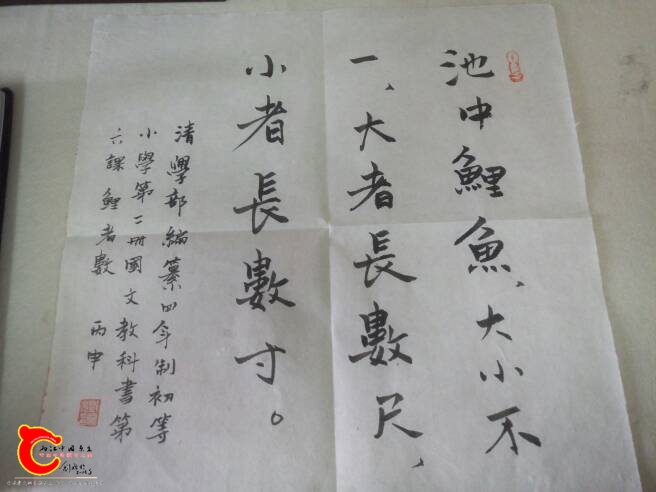 池中鯉魚、大小不
一、大者長數尺、
小者長數寸。
清學部編纂四年制初等
小學第二冊國文教科書第
六課 鯉者數 丙申